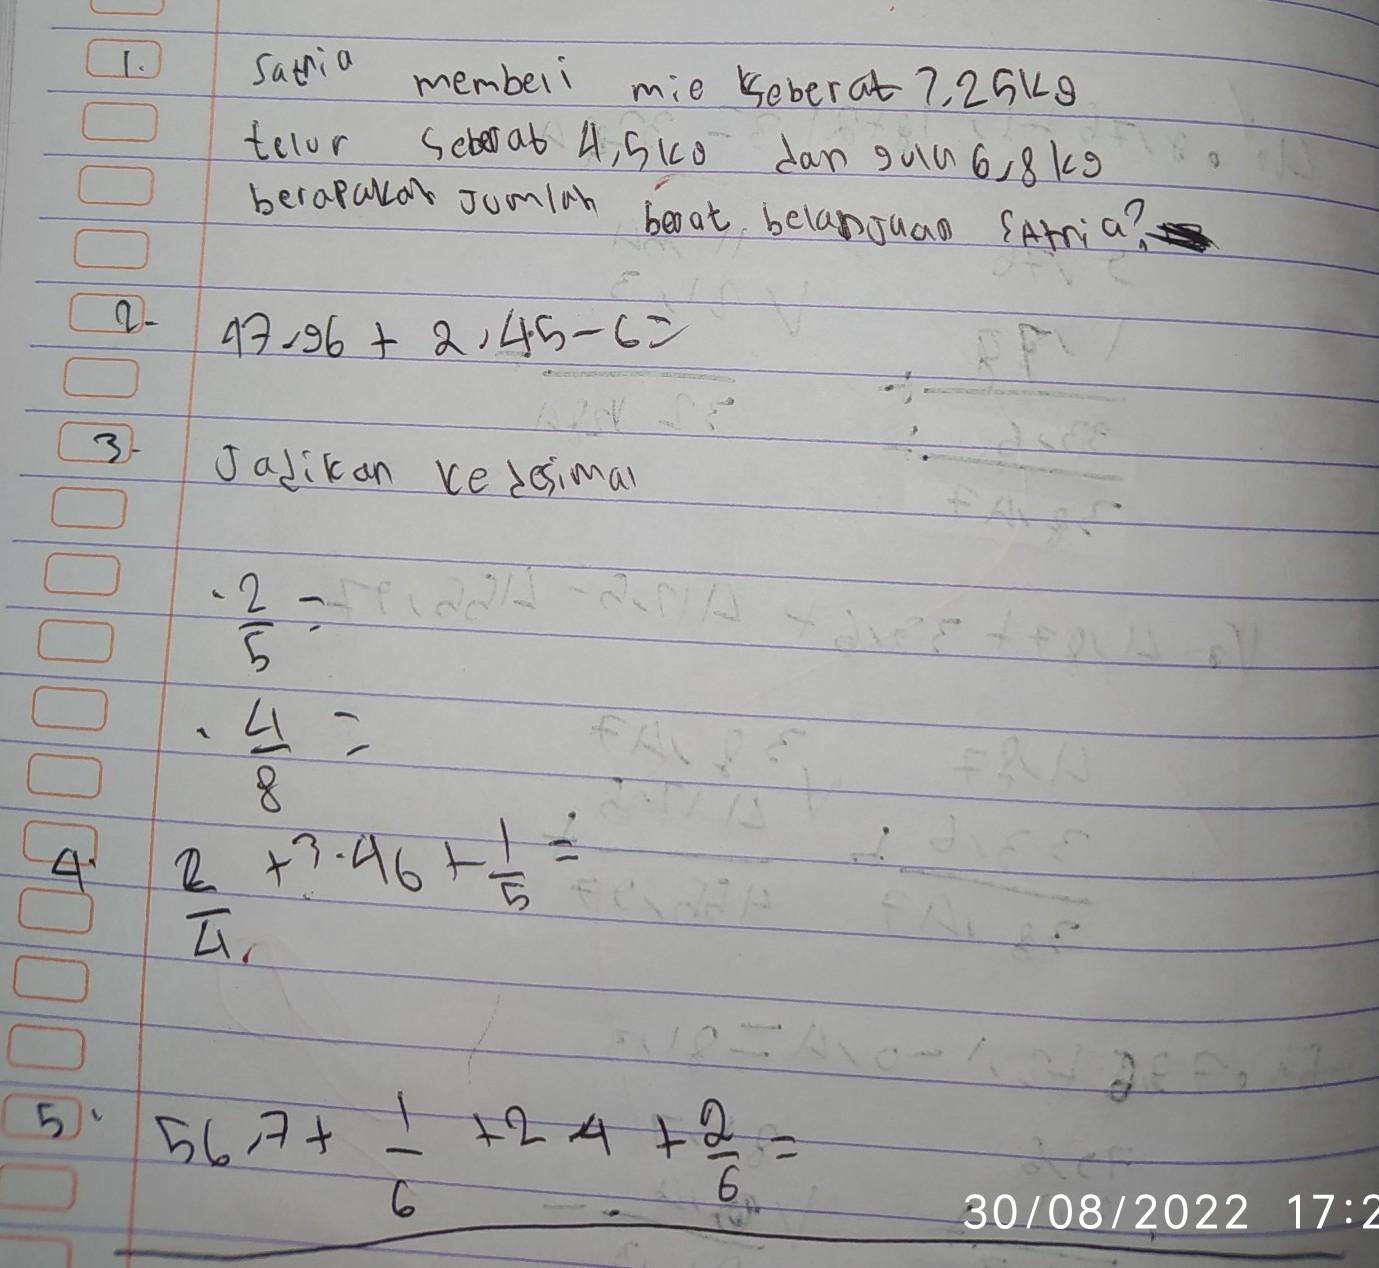 1. Satria membeli mie seberat 7,25kg
telur seberat 4,5kg dan gula 6,8kg
berapakah jumlah berat belanjaan Satria?
2. 17,96 + 2,45 - 6 =
3. Jadikan ke desimal
. 2/5 =
. 4/8 =
4. 2/4 + 3.46 + 1/5 =
5. 56,7 + 1/6 + 2 4 + 2/6 =
30/08/2022 17:2